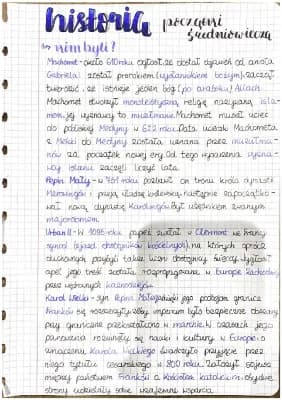 historia początki
średniowiecza
kim byli?
Machomet - około 610 roku ogłosił, że dostał objawień od anioła
Gabriela i został prorokiem (wysłannikiem bożym), zaczął
twierdzić, że istnieje jeden bóg (po arabsku) Allach
Machomet stworzył monoteistyczną religię nazywaną isla-
mem, jej wyznawcy to muzułmanie. Machomet musiał uciec
do pobliskiej Medyny w 622 roku. Data ucieczki Machometa
z Mekki do Medyny została uznana przez muzułma-
nów za początek nowej ery. Od tego wydarzenia wyzna-
wcy islamu zaczęli liczyć lata.
Pepin Mały - w 751 roku pozbawił on tronu króla dynastii
Merowingów i przejął władzę królewską, następnie zapoczątko-
wał nową dynastię Karolingów. Był urzędnikiem zwanym
majordomem.
Urban II - W 1095 roku papież zwołał w Clermont we Francji
synod (zjazd dostojników kościelnych), na którym oprócz
duchownych przybyli także liczni dostojnicy świeccy. Wygłosił
apel, jego treść została rozpropagowana w Europie Zachodniej
przez wybranych kaznodziejów.
Karol Wielki - syn Pepina Małego
Franków się rozszerzyły, aby imperium było bezpieczne obszary
przy granicznej przekształcono w marchie. W czasach jego
panowania rozwinęły się nauki i kultury w Europie, o
znaczeniu Karola Wielkiego świadczyło przyjęcie przez
niego tytułu cesarskiego w 800 roku. Założył sojusz
między państwem Franków a Kościołem katolickim, obydwie
strony udzieliły sobie wzajemnie wsparcia.